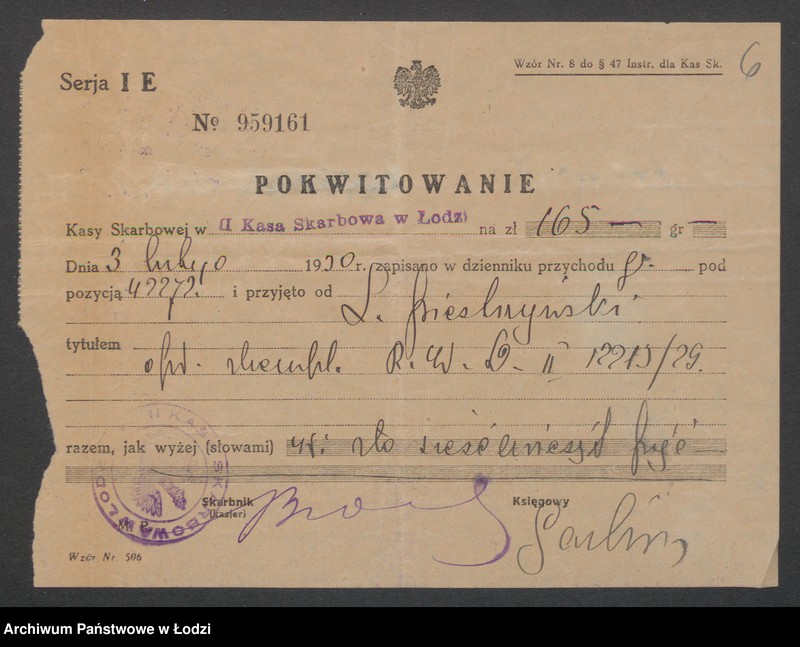 Serja I E
Wzór Nr. 8 do § 47 Instr. dla Kas Sk.
6
Nº 959161
POKWITOWANIE
Kasy Skarbowej w II Kasa Skarbowa w Łodzi na zł 165 — gr —
Dnia 3 lutego 1930 r. zapisano w dzienniku przychodu g. pod
pozycją 42272. i przyjęto od L.
tytułem opł. stempl. R. W. D. II 12215/29.
razem, jak wyżej (słowami) zł: sto sześćdziesiąt pięć —
II KASA SKARBOWA W ŁODZI
Skarbnik
(kasjer)
Księgowy
Wzór Nr. 506
Archiwum Państwowe w Łodzi